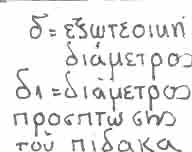 δ = εξωτεοικη
διάμετρος
δ1 = διάμετρος
προσπτώσης
τοῦ πίδακα